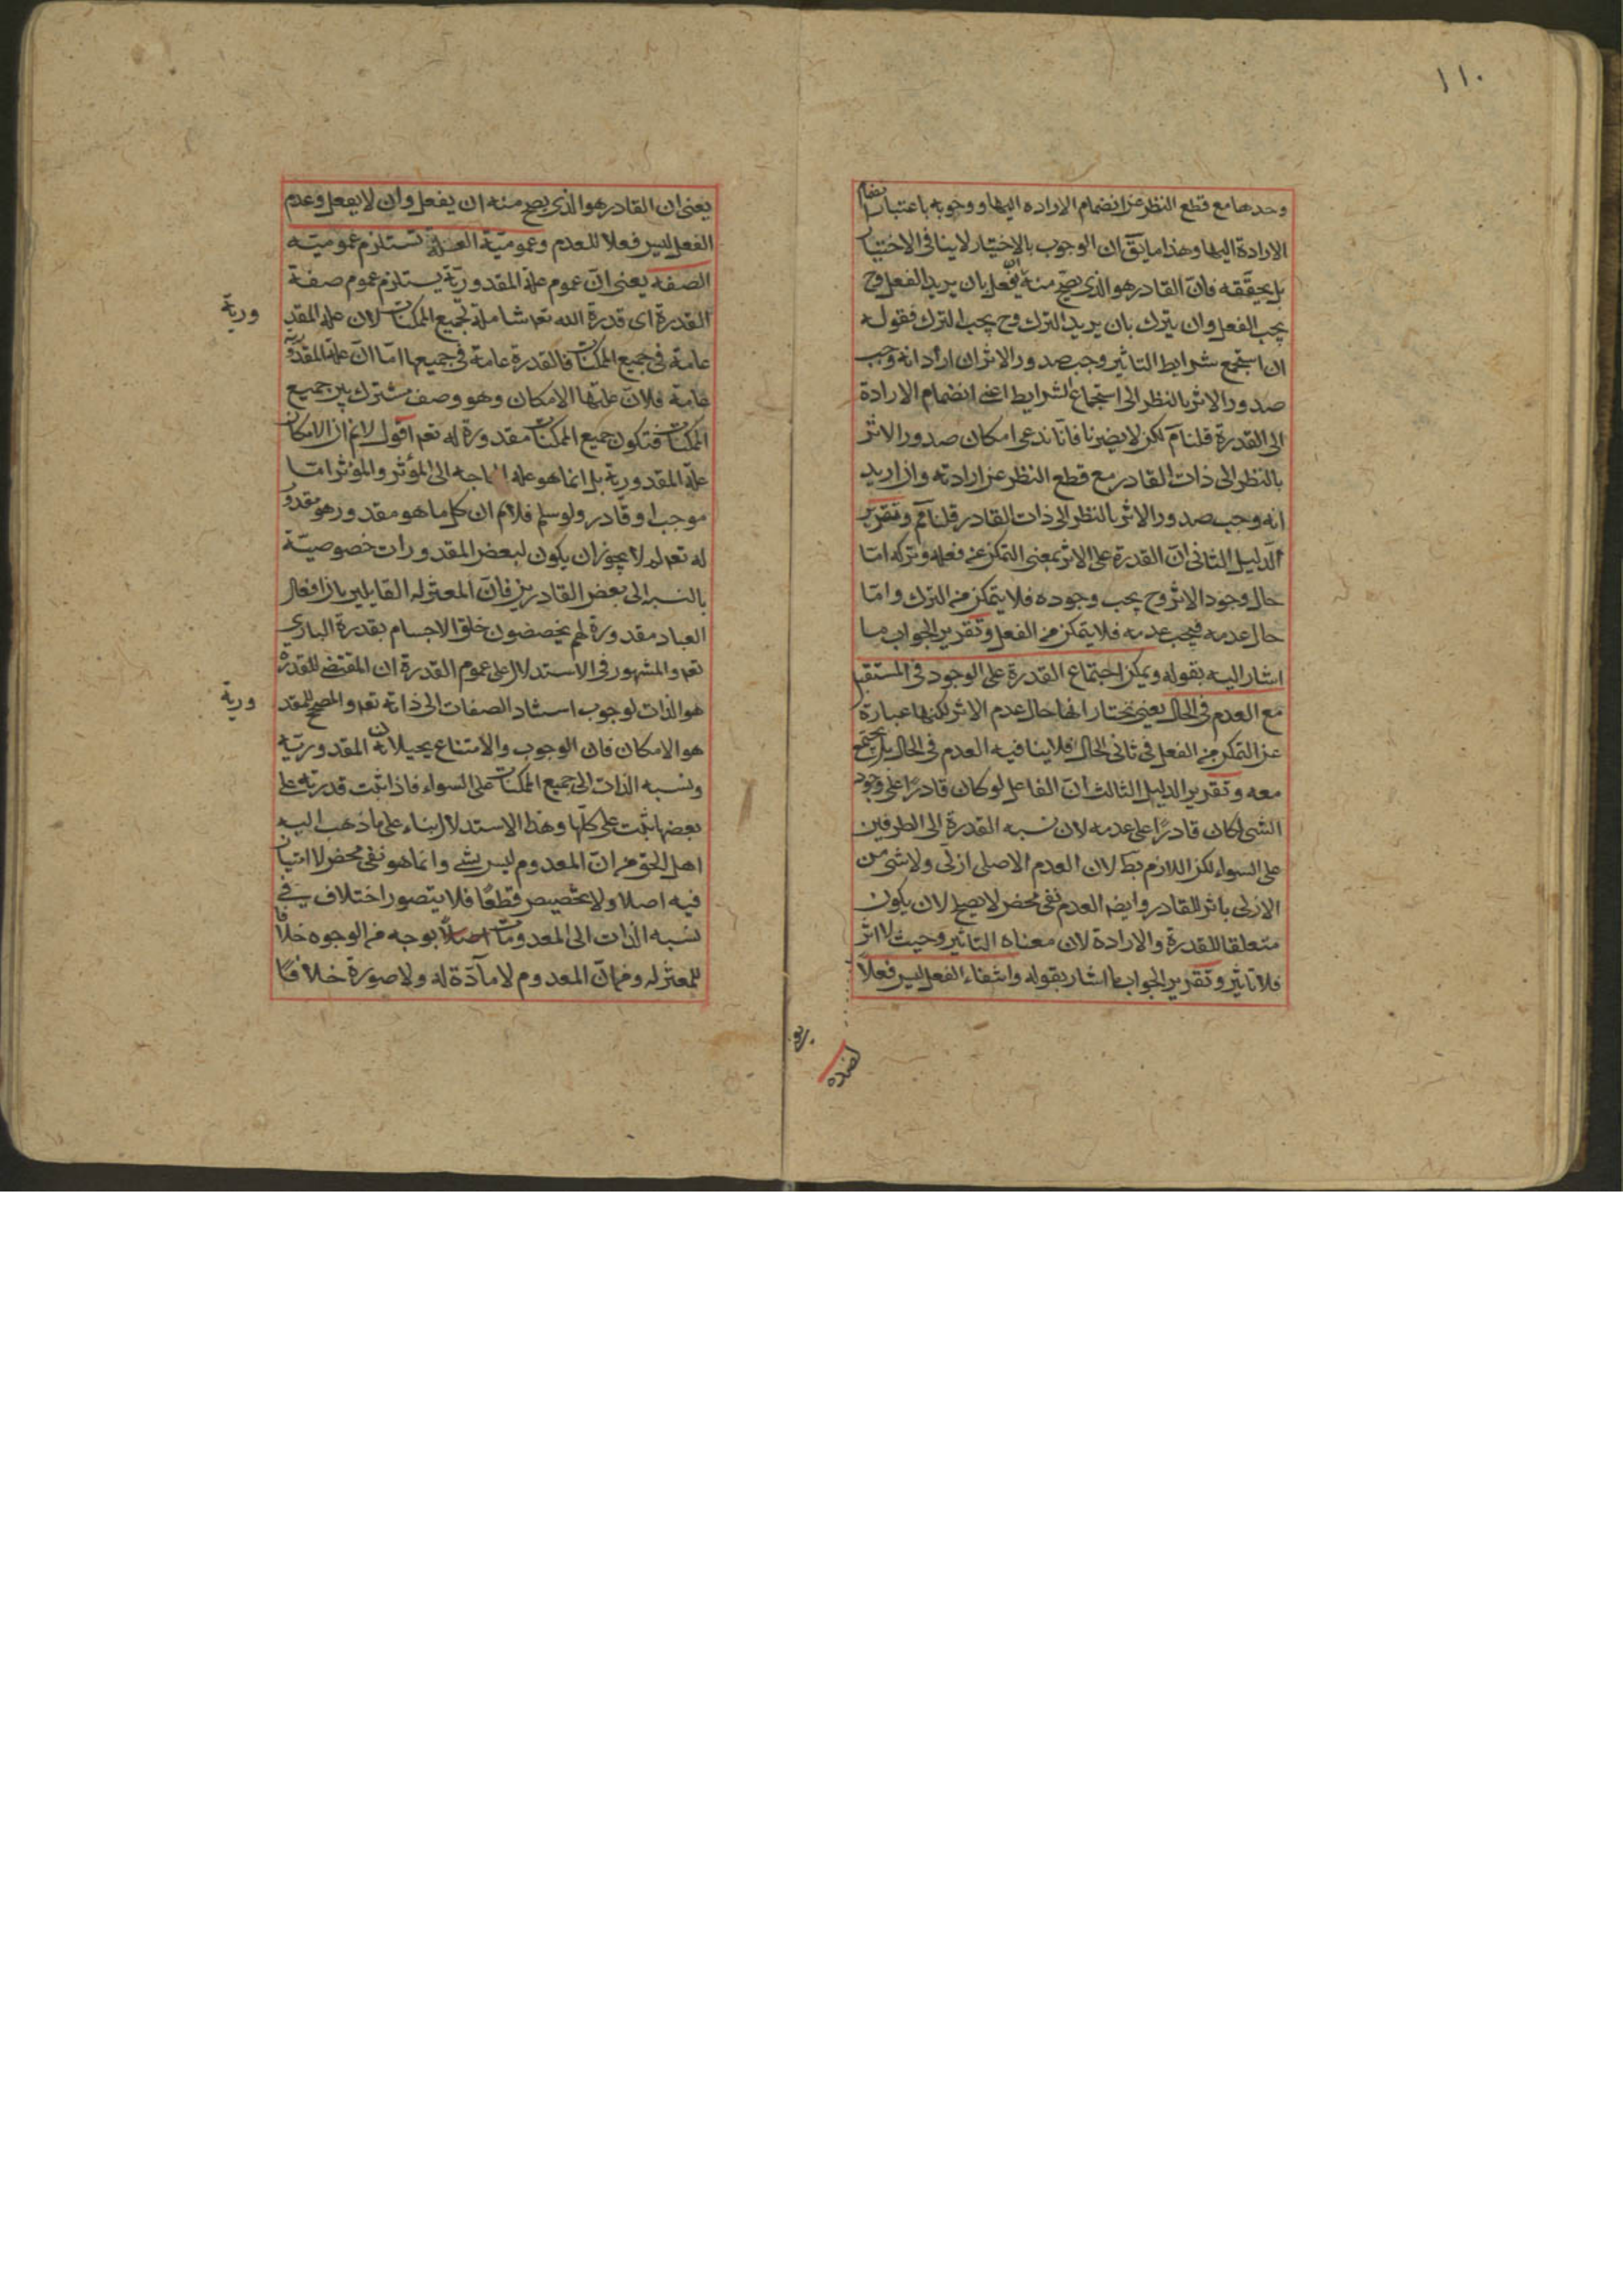 ١١٠
وحدها مع قطع النظر عن انضمام الاراده اليها ووجوبه باعتبار انضمام
الارادة اليها وهذا ما يقٓ ان الوجوب بالاختيار لا ينافى الاختيار
بل يحققه فانّ القادر هو الذى يصحّ منه ان يفعل بان يريد الفعل وح
يجب الفعل وان يترك بان يريد الترك وح يجب الترك فقوله
ان استجمع شرايط التاثير وجب صدور الاثر ان اراد انه وجب
صدور الاثر بالنظر الى استجماع الشرايط اعنى انضمام الارادة
الى القدرة قلنا مٓ لكن لا يضيرنا فانّا ندعى امكان صدور الاثر
بالنظر الى ذات القادر مع قطع النظر عن ارادته وان اريد
انه وجب صدور الاثر بالنظر الى ذات القادر قلنا مٓم وتقرير
الدليل الثانى انّ القدرة على الاثر بمعنى التمكن عن فعله وتركه امّا
حال وجود الاثر وح يجب وجوده فلا يتمكن من الترك وامّا
حال عدمه فيجب عدمه فلا يتمكن من الفعل وتقرير الجواب ما
اشار اليه بقوله ويمكن اجتماع القدرة على الوجود فى المستقبل
مع العدم فى الحال يعنى نختار انها حال عدم الاثر لكنها عبارة
عن التمكن من الفعل فى ثانى الحال فلا ينافيه العدم فى الحال بل يجتمع
معه وتقرير الدليل الثالث انّ الفاعل لو كان قادرًا على وجود
الشئ لكان قادرًا على عدمه لان نسبه القدرة الى الطرفين
على السواء لكن اللازم بط لان العدم الاصلى ازلى ولا شئ من
الازلى باثر للقادر وايضه العدم نفى محض لا يصح لان يكون
متعلقا للقدرة والارادة لان معناه التاثير وحيث لا اثر
فلا تاثير وتقرير الجواب ما اشار بقوله وانتفاء الفعل ليس فعلا
لضده
يعنى ان القادر هو الذى يصح منه ان يفعل وان لا يفعل وعدم
الفعل ليس فعلا للعدم وعموميّة العلة تستلزم عموميّته
الصفه يعنى انّ عموم علة المقدوريّة يستلزم عموم صفة
القدرة اى قدرة الله تعه شاملة لجميع الممكنات لان عله المقد
ورية
عامة فى جميع الممكنات فالقدرة عامة فى جميعها امّا انّ علة المقدورية
عامة فلانّ علتها الامكان وهو وصف مشترك بين جميع
الممكنات فتكون جميع الممكنات مقدورة له تعه اقول لا نم ان الامكان
علة المقدورية بل انما هو علة الحاجه الى المؤثر والمؤثر امّا
موجب او قادر ولو سلم فلا نم ان كل ما هو مقدور هو مقدور
له تعه لم لا يجوز ان يكون لبعض المقدورات خصوصيّة
بالنسبه الى بعض القادرين فانّ المعتزله القايلين بان افعال
العباد مقدورة لهم يخصصون خلق الاجسام بقدرة البارى
تعه والمشهور فى الاستدلال على عموم القدرة ان المقتضى للقدرة
هو الذات لوجوب استناد الصفات الى ذاته تعه والمصحح للمقد
ورية
هو الامكان فان الوجوب والامتناع يحيلان المقدوريّه
ونسبه الذات الى جميع الممكنات على السواء فاذا ثبت قدرته على
بعضها ثبت على كلّها وهذا الاستدلال بناء على ما ذهب اليه
اهل الحق من انّ المعدوم ليس بشئ وانما هو نفى محض لا امتياز
فيه اصلا ولا تخصيص قطعًا فلا يتصور اختلاف فى
نسبه الذات الى المعدومات بوجه من الوجوه خلافا
للمعتزله ومن انّ المعدوم لا مادّة له ولا صورة خلافا